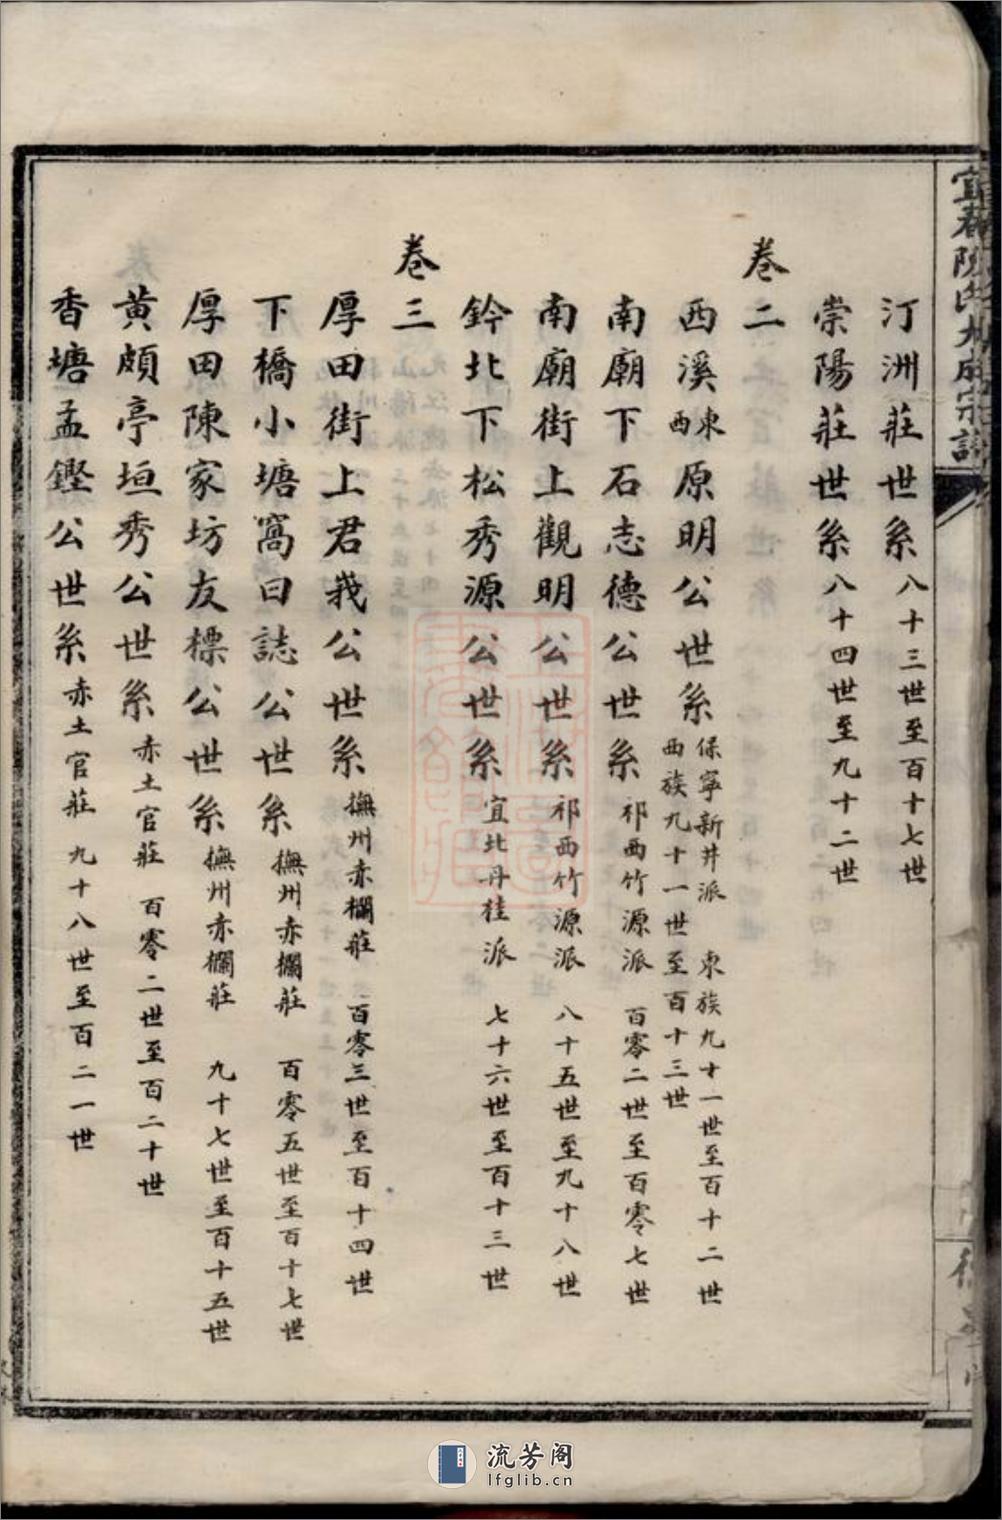 宜春陳氏大成宗譜
汀洲莊世系八十三世至百十七世
崇陽莊世系八十四世至九十二世
卷二
西溪東西原明公世系保寧新井派 東族九十一世至百十二世
西族九十一世至百十三世
南廟下石志德公世系祁西竹源派 百零二世至百零七世
南廟街上觀明公世系祁西竹源派 八十五世至九十八世
鈐北下松秀源公世系宜北丹桂派 七十六世至百十三世
卷三
厚田街上君莪公世系撫州赤欄莊 百零三世至百十四世
下橋小塘窩曰誌公世系撫州赤欄莊 百零五世至百十七世
厚田陳家坊友標公世系撫州赤欄莊 九十七世至百十五世
黄頗亭垣秀公世系赤土官莊 百零二世至百二十世
香塘孟鏗公世系赤土官莊 九十八世至百二一世
流芳阁
lfglib.cn